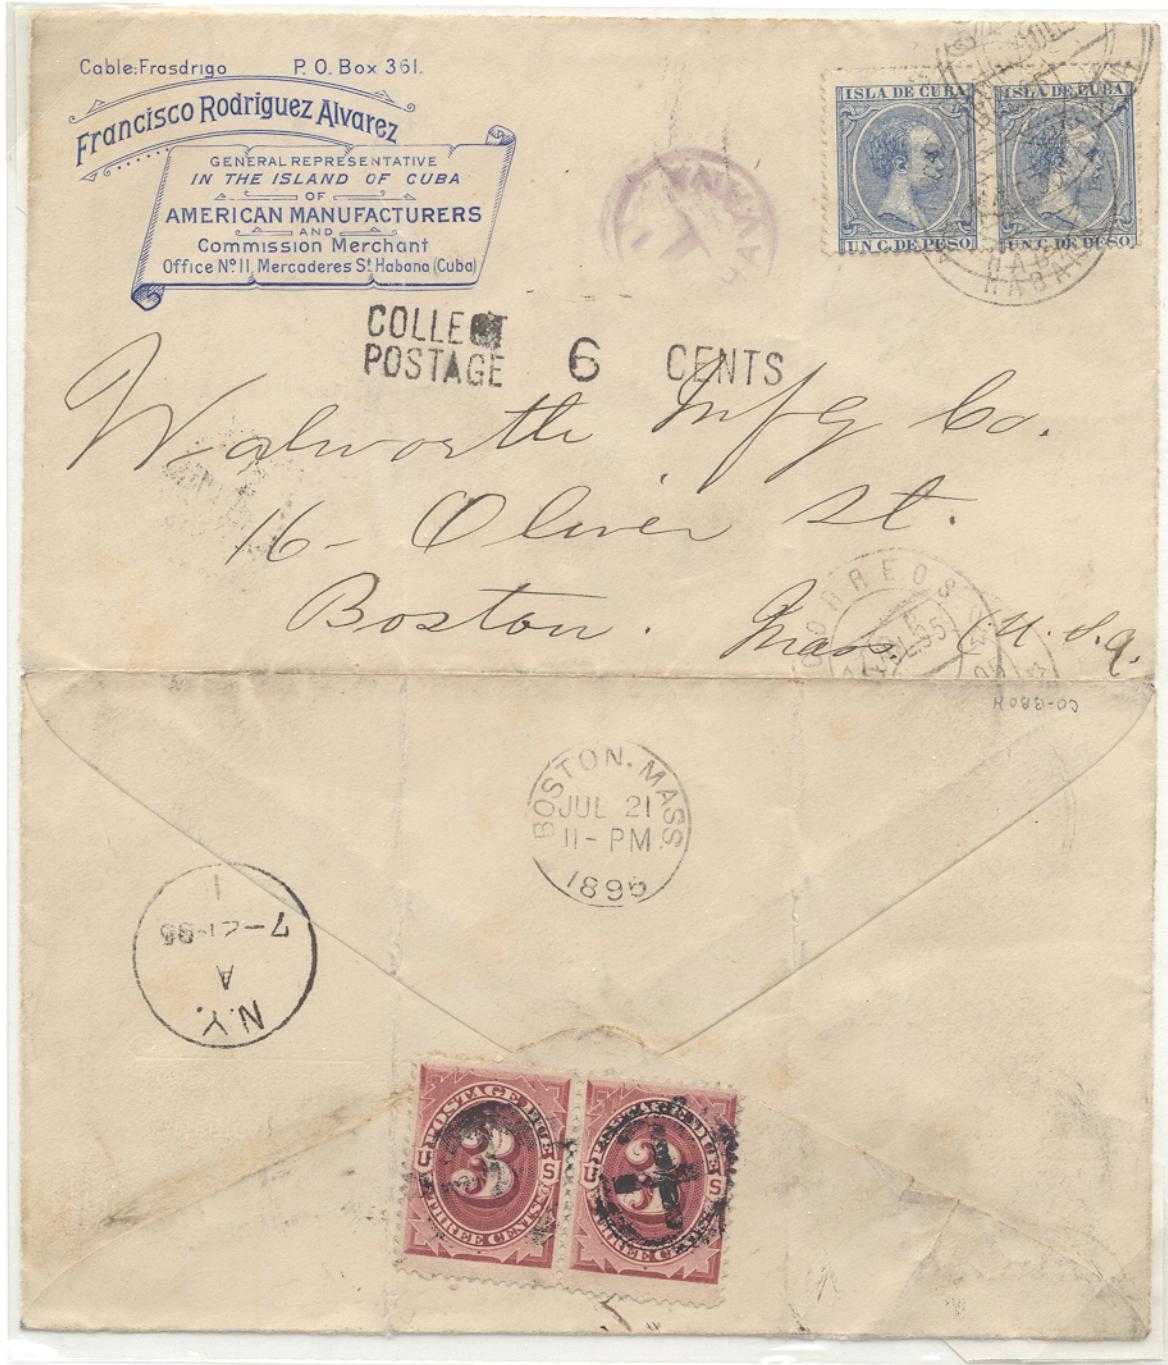 Cable: Frasdrigo P. O. Box 361.
Francisco Rodriguez Alvarez
GENERAL REPRESENTATIVE
IN THE ISLAND OF CUBA
OF
AMERICAN MANUFACTURERS
AND
Commission Merchant
Office Nº 11, Mercaderes St. Habana (Cuba)
ISLA DE CUBA ISLA DE CUBA
UN C. DE PESO UN C. DE PESO
HABANA
COLLECT
POSTAGE 6 CENTS
Walworth Mfg Co.
16- Oliver St.
Boston. Mass. (U.S.A.
CORREOS
CO-8804
BOSTON. MASS.
JUL 21
11-PM
1895
N.Y.
A
7-21-95
1
POSTAGE DUE
U 3 S
THREE CENTS
POSTAGE DUE
U 3 S
THREE CENTS